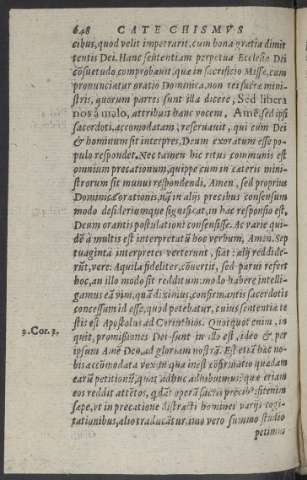 648 CATECHISMVS
cibus, quod velit impetrarit, cum bona gratia dimit
tentis Dei. Hanc sententiam perpetua Ecclesiæ Dei
cōsuetudo comprobauit, quæ in sacrificio Missæ, cum
pronunciatur oratio Dominica, non rei sacræ mini-
stris, quorum partes sunt illa dicere, Sed libera
nos à malo, attribuit hanc vocem, Amē, sed ipsi
sacerdoti, accomodatam, reseruauit, qui cum Dei
& hominum sit interpres, Deum exoratum esse po-
pulo respondet. Nec tamen hic ritus communis est
omnium precationum, quippe cum in cæteris mini-
strorum sit munus respondendi, Amen, sed proprius
Dominicæ orationis, nā in alijs precibus consensum
modo desideriumque significat, in hac responsio est,
Deum orantis postulationi consensisse. Ac variè qui-
dē à multis est interpretatū hoc verbum, Amen. Sep
tuaginta interpretes verterunt, fiat: alij reddide-
rūt, verè: Aquila fideliter, cōuertit, sed parui refert
hoc, an illo modo sit redditum: modo habere intelli-
gamus eā vim, quā diximus, confirmantis sacerdotis
concessum id esse, quod petebatur, cuius sententiæ te
stis est Apostolus ad Corinthios. Quotquot enim, in-
2.Cor.3. quit, promissiones Dei sunt in illo est, ideo & per
ipsum Amē Deo, ad gloriam nostrā. Est etiā hæc no-
bis accōmodata vox in qua inest cōfirmatio quædam
earū petitionū, quas adhuc adhibuimus: quæ etiam
eos reddit attētos, qui dāt operā sacris precib⁹: sit enim
sæpe, vt in precatione distracti homines varijs cogi-
tationibus, aliò traducātur. imo vero summo studio
petimus